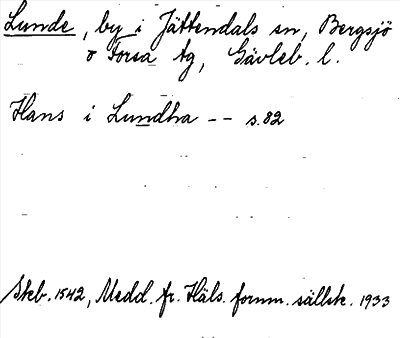 Lunde, by i Jättendals sn, Bergsjö
o Forsa tg, Gävleb. l.
Hans i Lundha -- s. 82
Skb. 1542, Medd. fr. Häls. fornm. sällsk. 1933